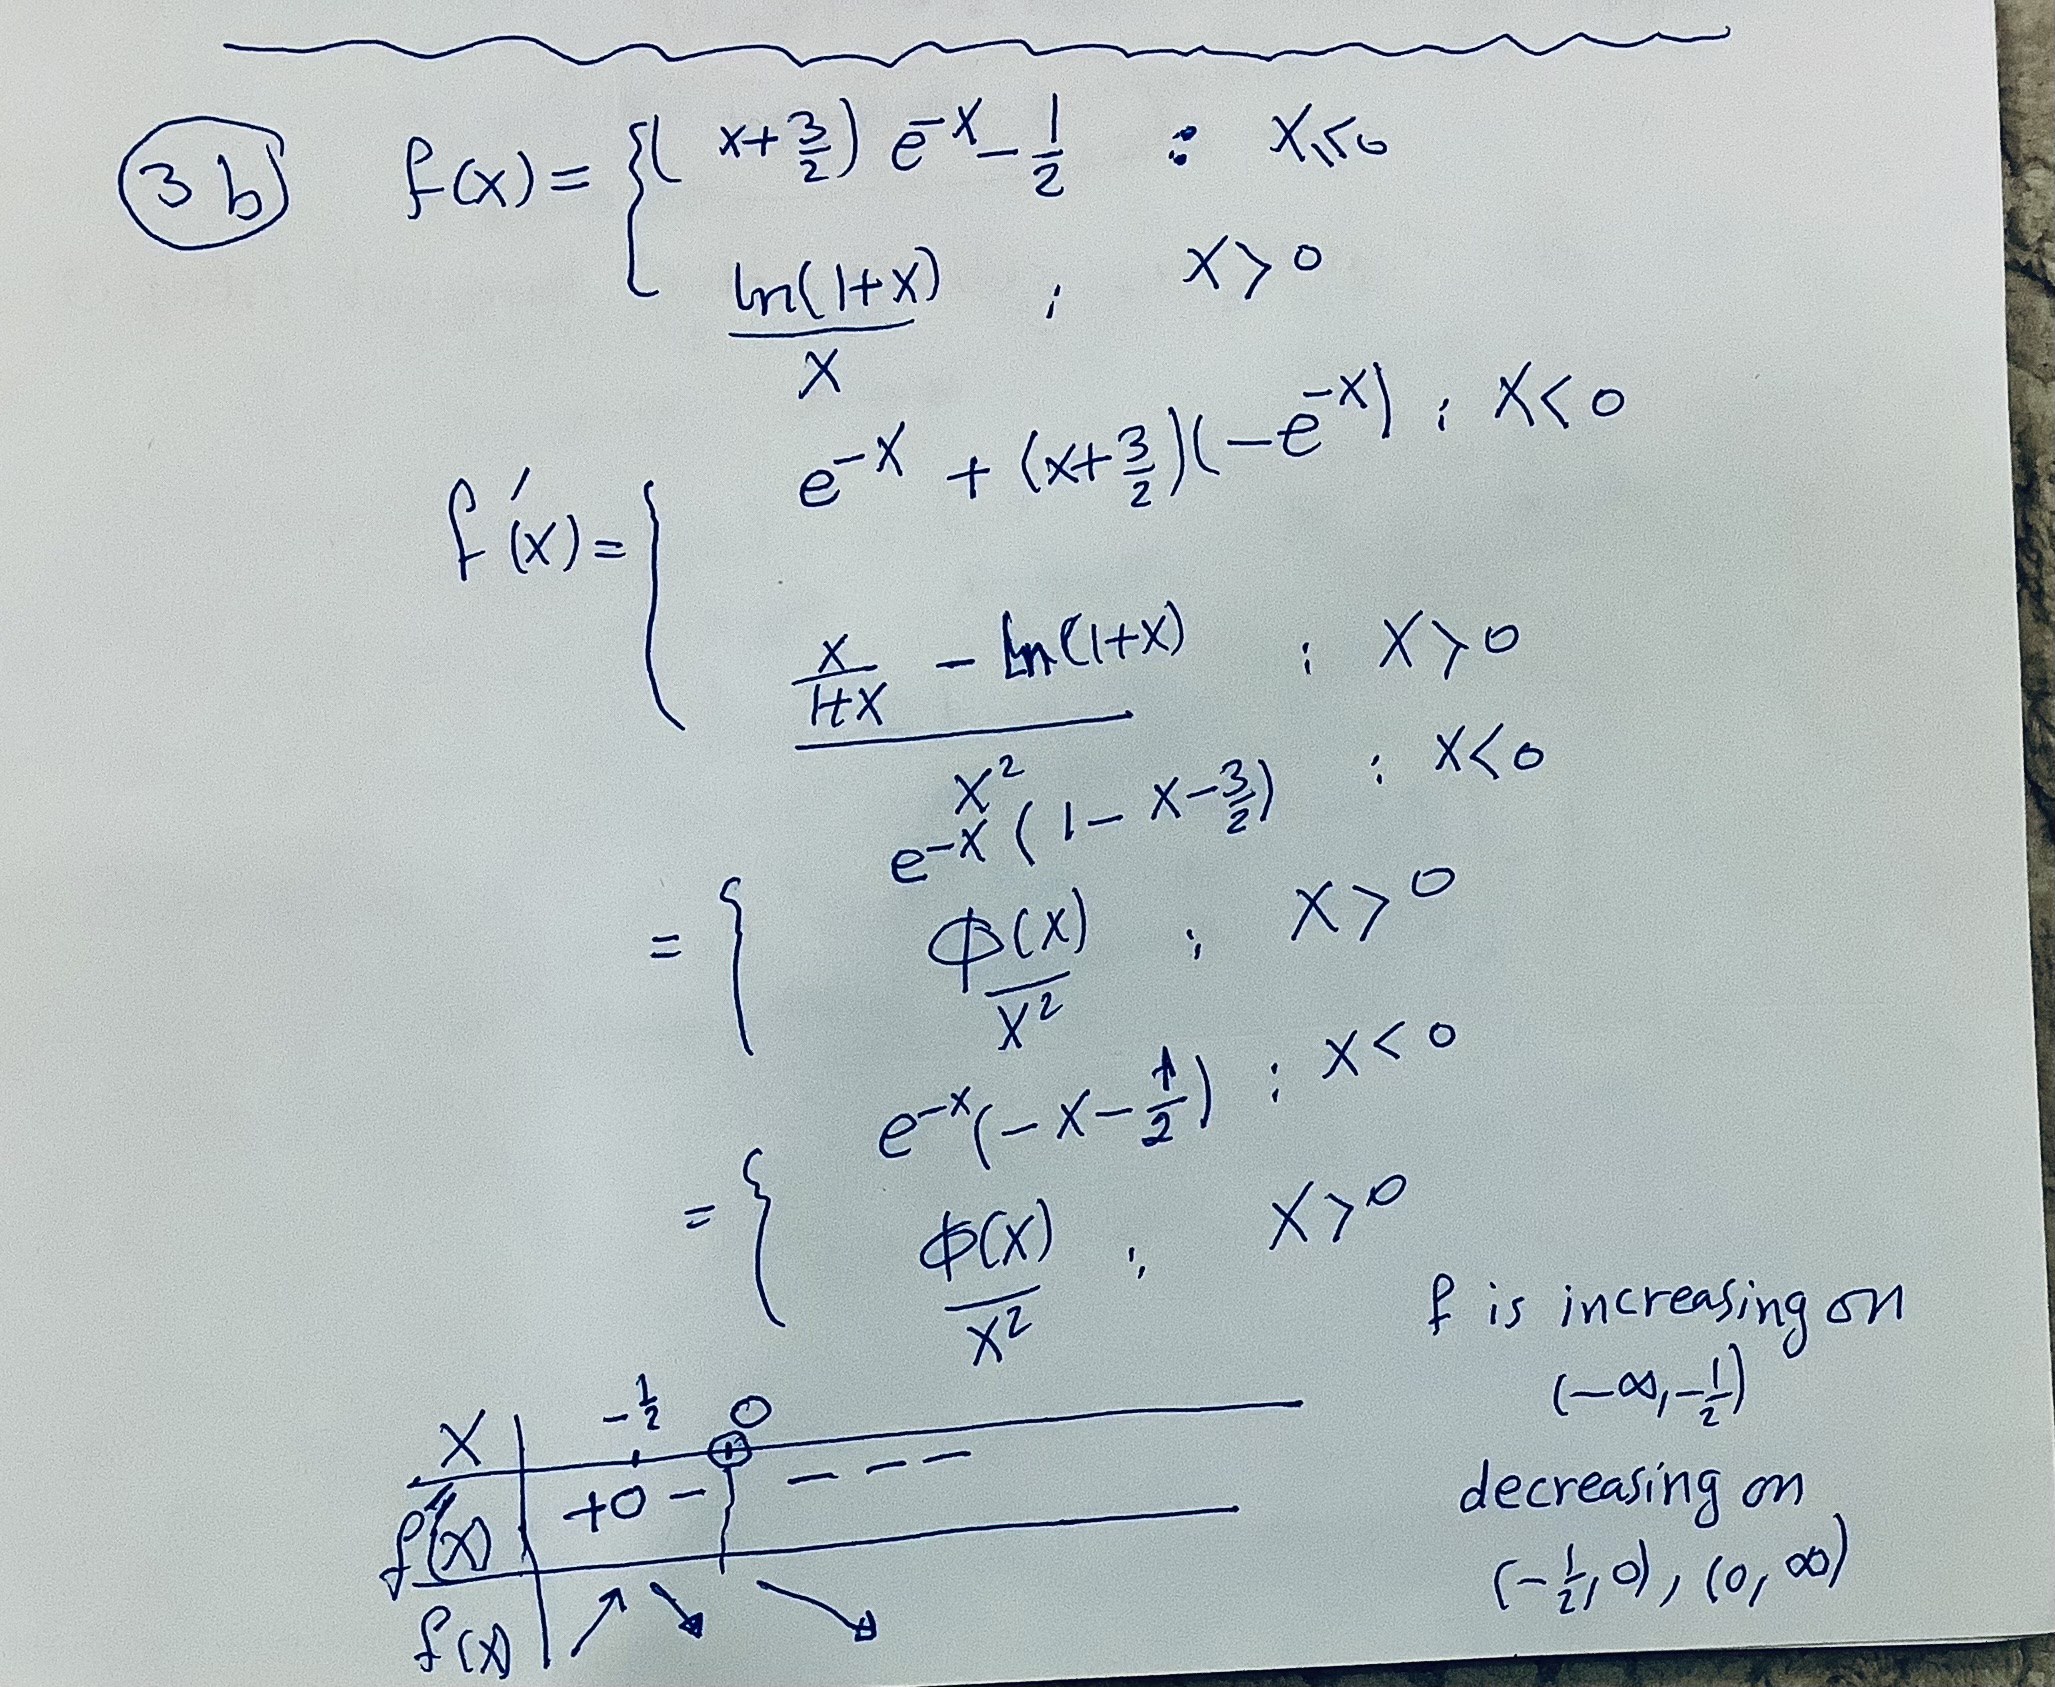 3b f(x) = { (x + 3/2) e^-x - 1/2 : x ≤ 0
ln(1+x)/x ; x > 0
f'(x) = { e^-x + (x + 3/2)(-e^-x) ; x < 0
(x/(1+x) - ln(1+x))/x^2 ; x > 0
= { e^-x (1 - x - 3/2) : x < 0
ϕ(x)/x^2 ; x > 0
= { e^-x (-x - 1/2) : x < 0
ϕ(x)/x^2 ; x > 0
f is increasing on
(-∞, -1/2)
decreasing on
(-1/2, 0), (0, ∞)
x | -1/2 0
f'(x) | + 0 - | - - -
f(x) | ↗ ↘ ↘